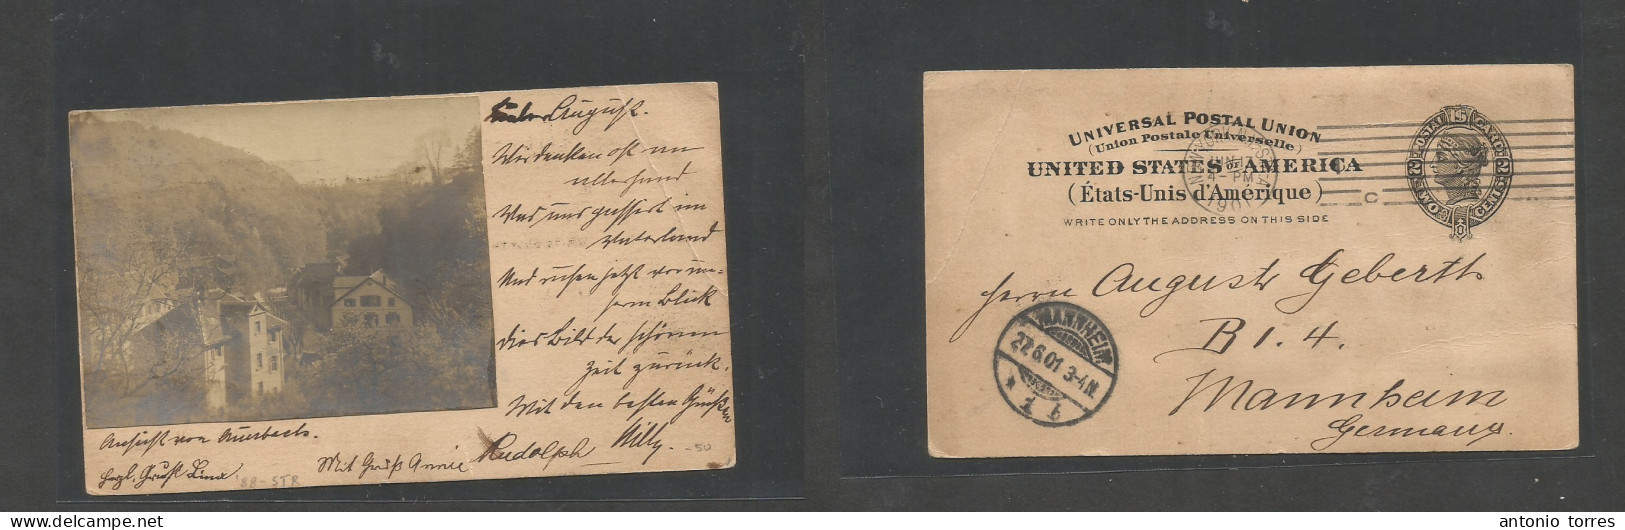 Lieber August.
Wir denken oft an
allerhand
Was uns passiert im
Vaterland
Und rufen jetzt vor un-
serm Blick
Dies Bild der schönen
Zeit zurück.
Mit den besten Grüßen
Rudolph Milly.
Ansicht von Auerbach.
Herzl. Gruß Lina
Mit Gruß Annie
88-STR
-50
UNIVERSAL POSTAL UNION
(Union Postale Universelle)
UNITED STATES OF AMERICA
(États-Unis d'Amérique)
WRITE ONLY THE ADDRESS ON THIS SIDE
POSTAL CARD
TWO CENTS
2 2
4- PM
C
Herrn August Geberth
B 1. 4.
Mannheim
Germany.
MANNHEIM
27.6.01 3-4N
antonio torres